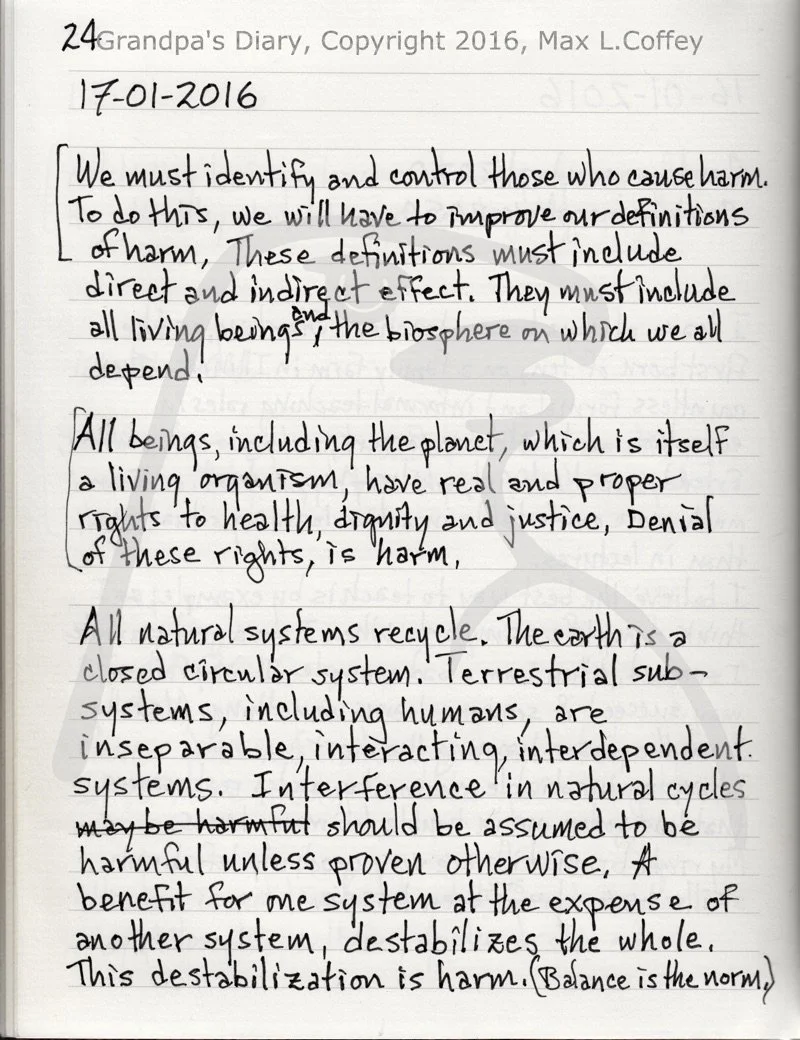 24 Grandpa's Diary, Copyright 2016, Max L.Coffey
17-01-2016
We must identify and control those who cause harm.
To do this, we will have to improve our definitions
of harm, These definitions must include
direct and indirect effect. They must include
all living beings, and the biosphere on which we all
depend.
All beings, including the planet, which is itself
a living organism, have real and proper
rights to health, dignity and justice, Denial
of these rights, is harm,
All natural systems recycle. The earth is a
closed circular system. Terrestrial sub-
systems, including humans, are
inseparable, interacting, interdependent.
systems. Interference in natural cycles
may be harmful should be assumed to be
harmful unless proven otherwise, A
benefit for one system at the expense of
another system, destabilizes the whole.
This destabilization is harm. (Balance is the norm.)